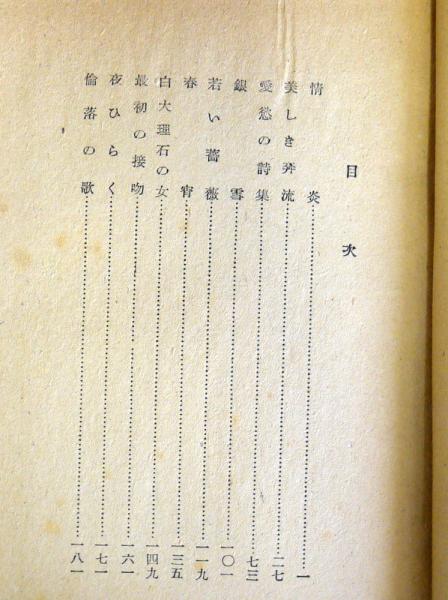 目次
情炎……一
美しき奔流……二七
愛慾の詩集……七三
銀雪……一〇一
若い薔薇……一一九
春宵……一三五
白大理石の女……一四九
最初の接吻……一六一
夜ひらく……一七一
倫落の歌……一八一